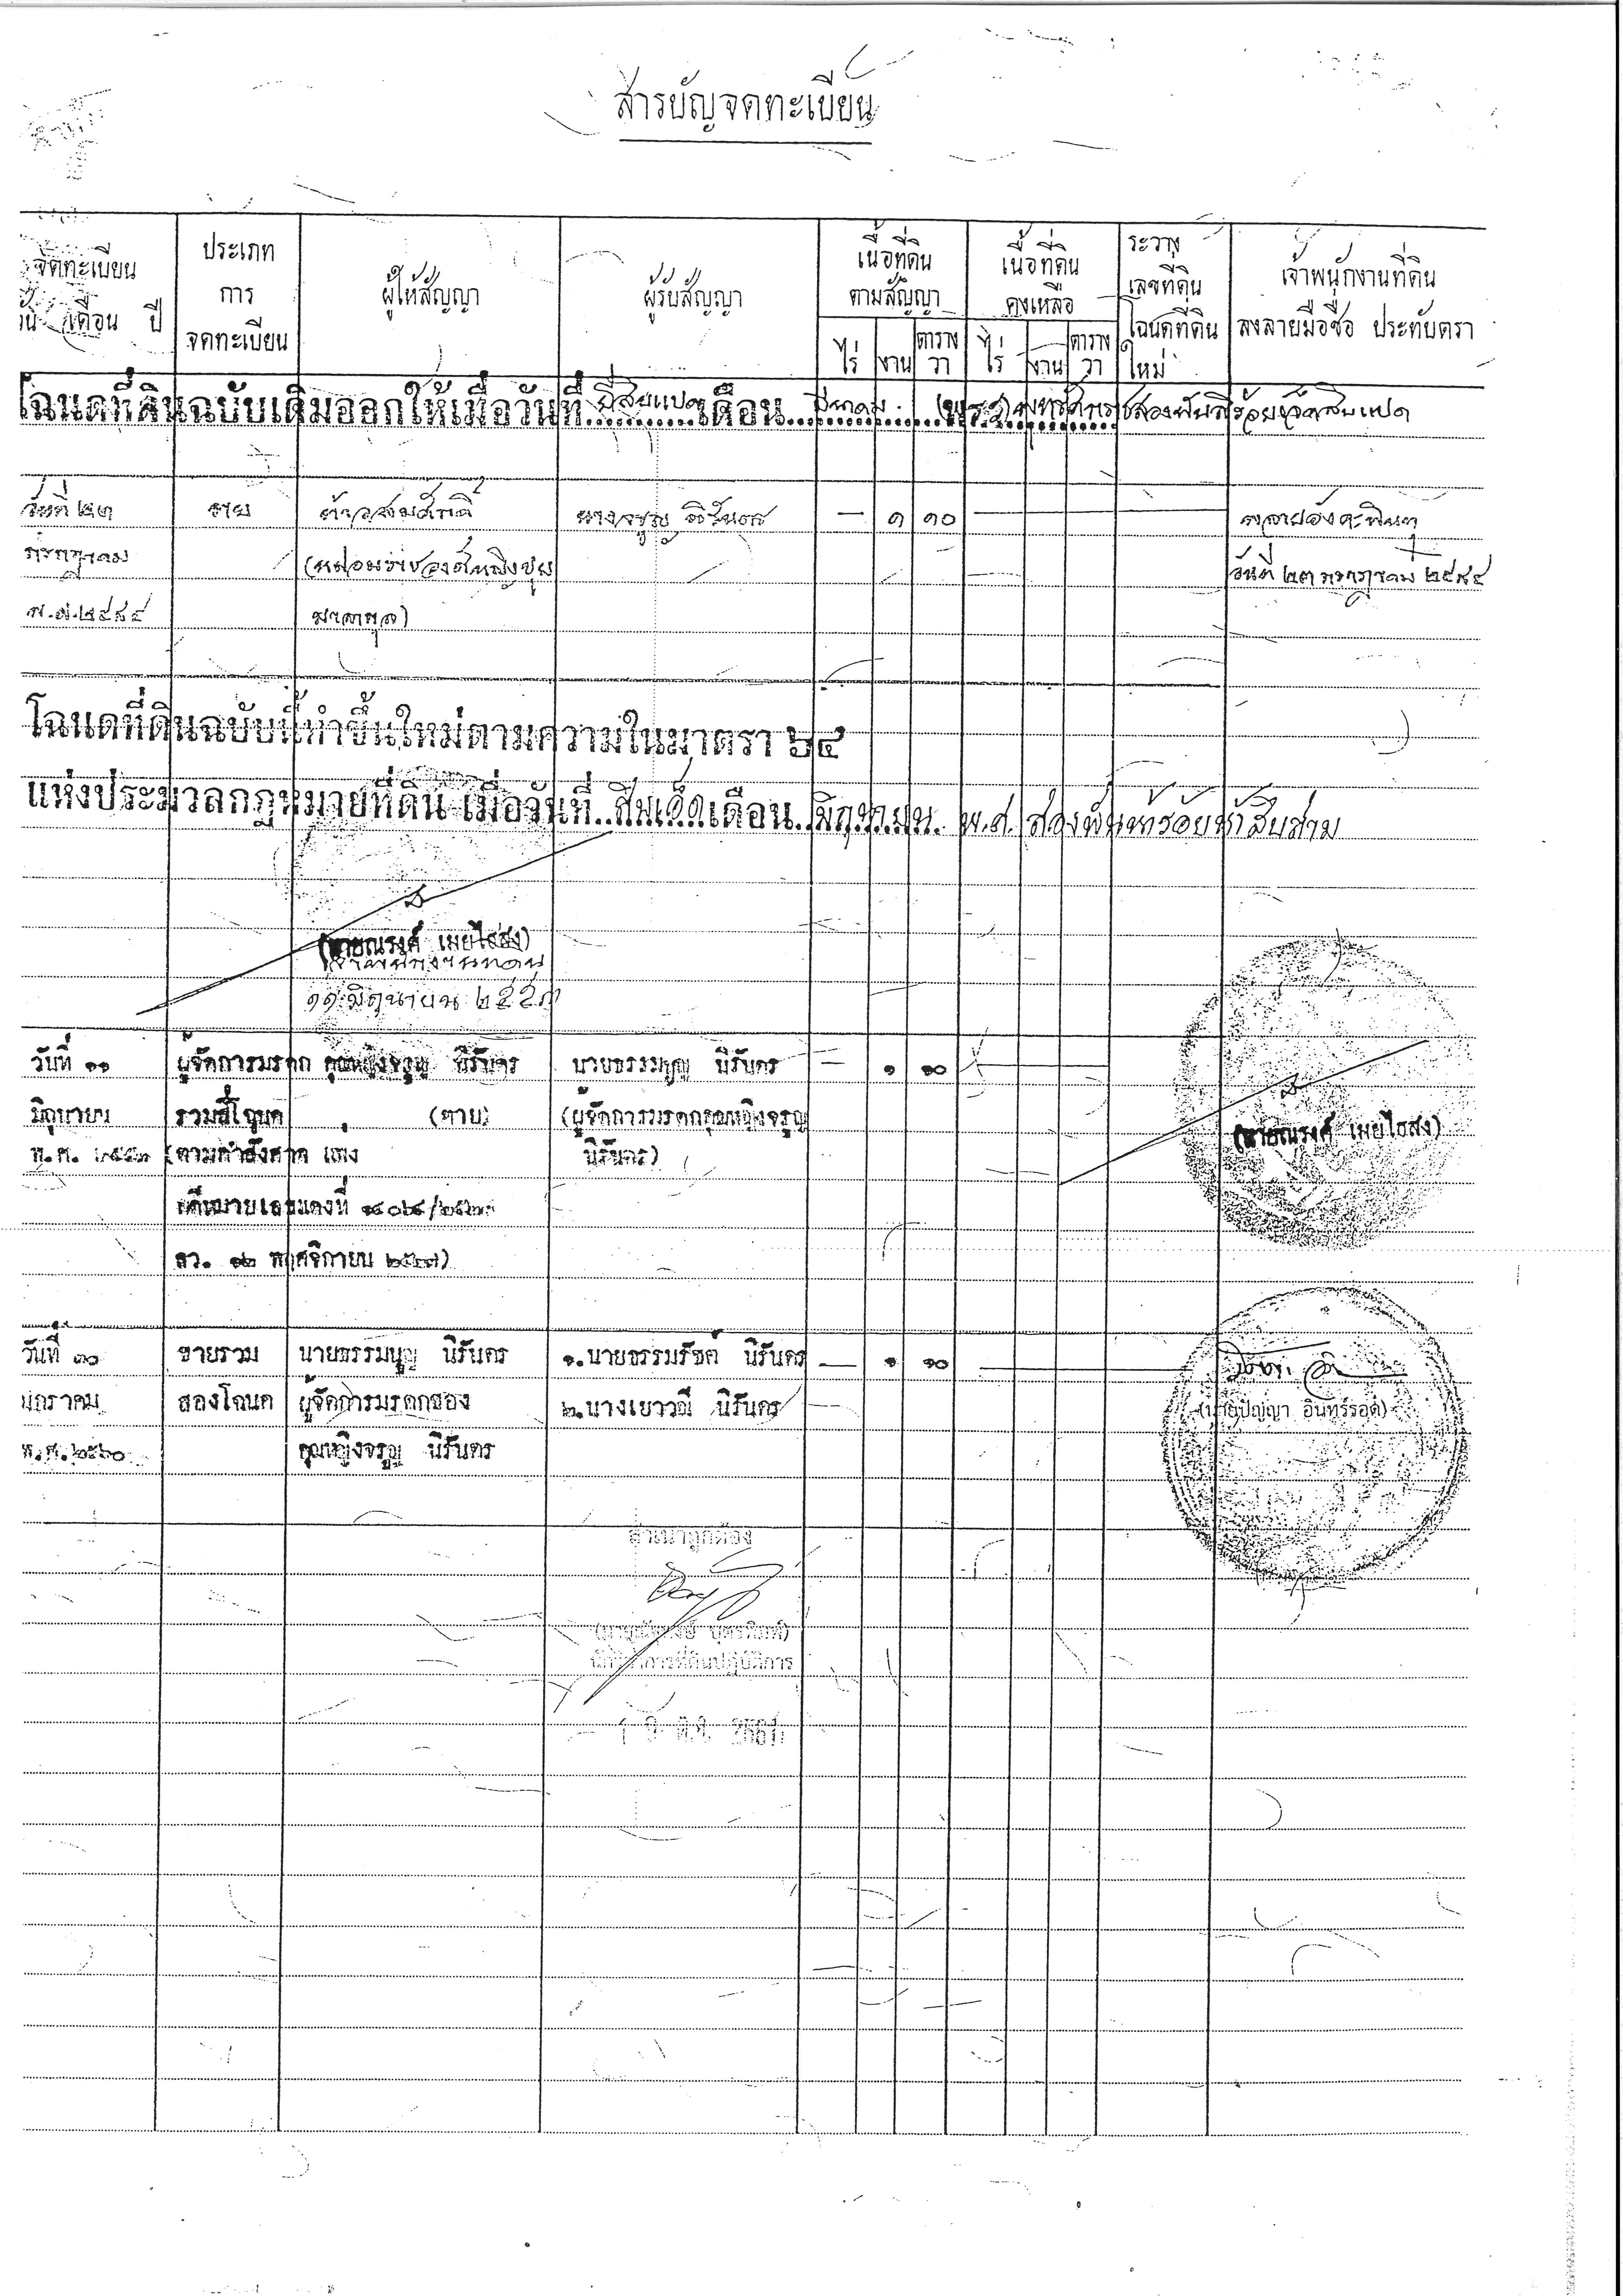 สารบัญจดทะเบียน
จดทะเบียน
เดือน ปี
ประเภท
การ
จดทะเบียน
ผู้ให้สัญญา
ผู้รับสัญญา
เนื้อที่ดิน
ตามสัญญา
ไร่ งาน ตาราง
วา
เนื้อที่ดิน
คงเหลือ
ไร่ งาน ตาราง
วา
ระวาง
เลขที่ดิน
โฉนดที่ดิน
ใหม่
เจ้าพนักงานที่ดิน
ลงลายมือชื่อ ประทับตรา
โฉนดที่ดินฉบับเดิมออกให้เมื่อวันที่ ยี่สิบแปด เดือน มีนาคม สองพันสี่ร้อยเจ็ดสิบแปด
วันที่ ๒๓ ขาย ท้าวสมศักดิ์ นางจรูญ นิรันดร — ๑ ๑๐
กรกฎาคม (หม่อมราชวงศ์หญิงปุย วันที่ ๒๓ กรกฎาคม ๒๔๘๔
พ.ศ. ๒๔๘๔ มาลากุล)
โฉนดที่ดินฉบับนี้ทำขึ้นใหม่ตามความในมาตรา ๖๔
แห่งประมวลกฎหมายที่ดิน เมื่อวันที่ สิบเอ็ด เดือน มิถุนายน พ.ศ. สองพันห้าร้อยห้าสิบสาม
(นายณรงค์ เผยไธสง)
เจ้าพนักงานที่ดิน
๑๑ มิถุนายน ๒๕๕๓
วันที่ ๑๑ ผู้จัดการมรดก คุณหญิงจรูญ นิรันดร นายธรรมนูญ นิรันดร — ๑ ๑๐
มิถุนายน รวมสี่โฉนด (ตาย) (ผู้จัดการมรดกคุณหญิงจรูญ (นายณรงค์ เผยไธสง)
พ.ศ. ๒๕๕๓ (ตามคำสั่งศาล แพ่ง นิรันดร)
คดีหมายเลขแดงที่
ลว. ๑๒ พฤศจิกายน ๒๕๒๗)
วันที่ ๓๐ ขายรวม นายธรรมนูญ นิรันดร ๑.นายธรรมรัชต์ นิรันดร — ๑ ๑๐
มกราคม สองโฉนด ผู้จัดการมรดกของ ๒.นางเยาวดี นิรันดร (นายปัญญา อินทร์รอด)
พ.ศ. ๒๕๖๐ คุณหญิงจรูญ นิรันดร
สำเนาถูกต้อง
นักวิชาการที่ดินปฏิบัติการ